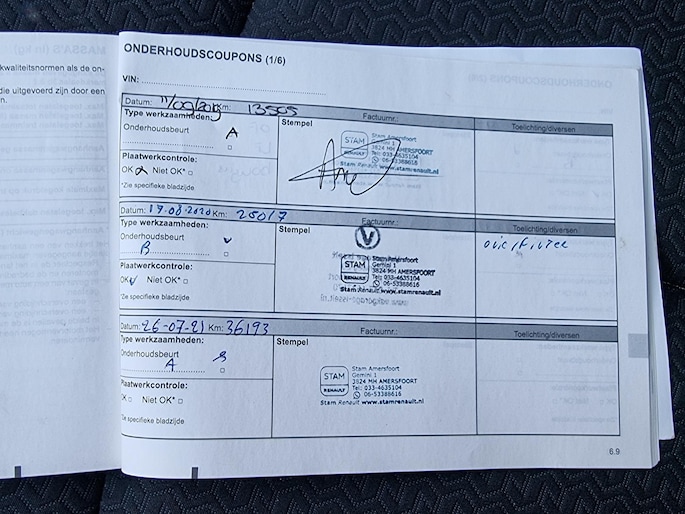 kwaliteitsnormen als de on-
die uitgevoerd zijn door een
n.
ONDERHOUDSCOUPONS (1/6)
VIN:
Datum: Km: 13505 Factuurnr.: Toelichting/diversen
Type werkzaamheden: Stempel
Onderhoudsbeurt A
Stam Amersfoort
Gemini 1
3824 MH AMERSFOORT
Tel: 033-4635104
Stam Renault www.stamrenault.nl
STAM
RENAULT
Plaatwerkcontrole:
OK Niet OK*
*Zie specifieke bladzijde
Datum: 17-08-2020 Km: 25017 Factuurnr.: Toelichting/diversen
Type werkzaamheden: Stempel
Onderhoudsbeurt
B
V
STAM
RENAULT
Stam Amersfoort
Gemini 1
3824 MH AMERSFOORT
Tel: 033-4635104
06-53388616
Stam Renault www.stamrenault.nl
Plaatwerkcontrole:
OK Niet OK*
*Zie specifieke bladzijde
Datum: 26-07-21 Km: 36193 Factuurnr.: Toelichting/diversen
Type werkzaamheden: Stempel
Onderhoudsbeurt
A
STAM
RENAULT
Stam Amersfoort
Gemini 1
3824 MH AMERSFOORT
Tel: 033-4635104
06-53388616
Stam Renault www.stamrenault.nl
Plaatwerkcontrole:
OK Niet OK*
*Zie specifieke bladzijde
6.9